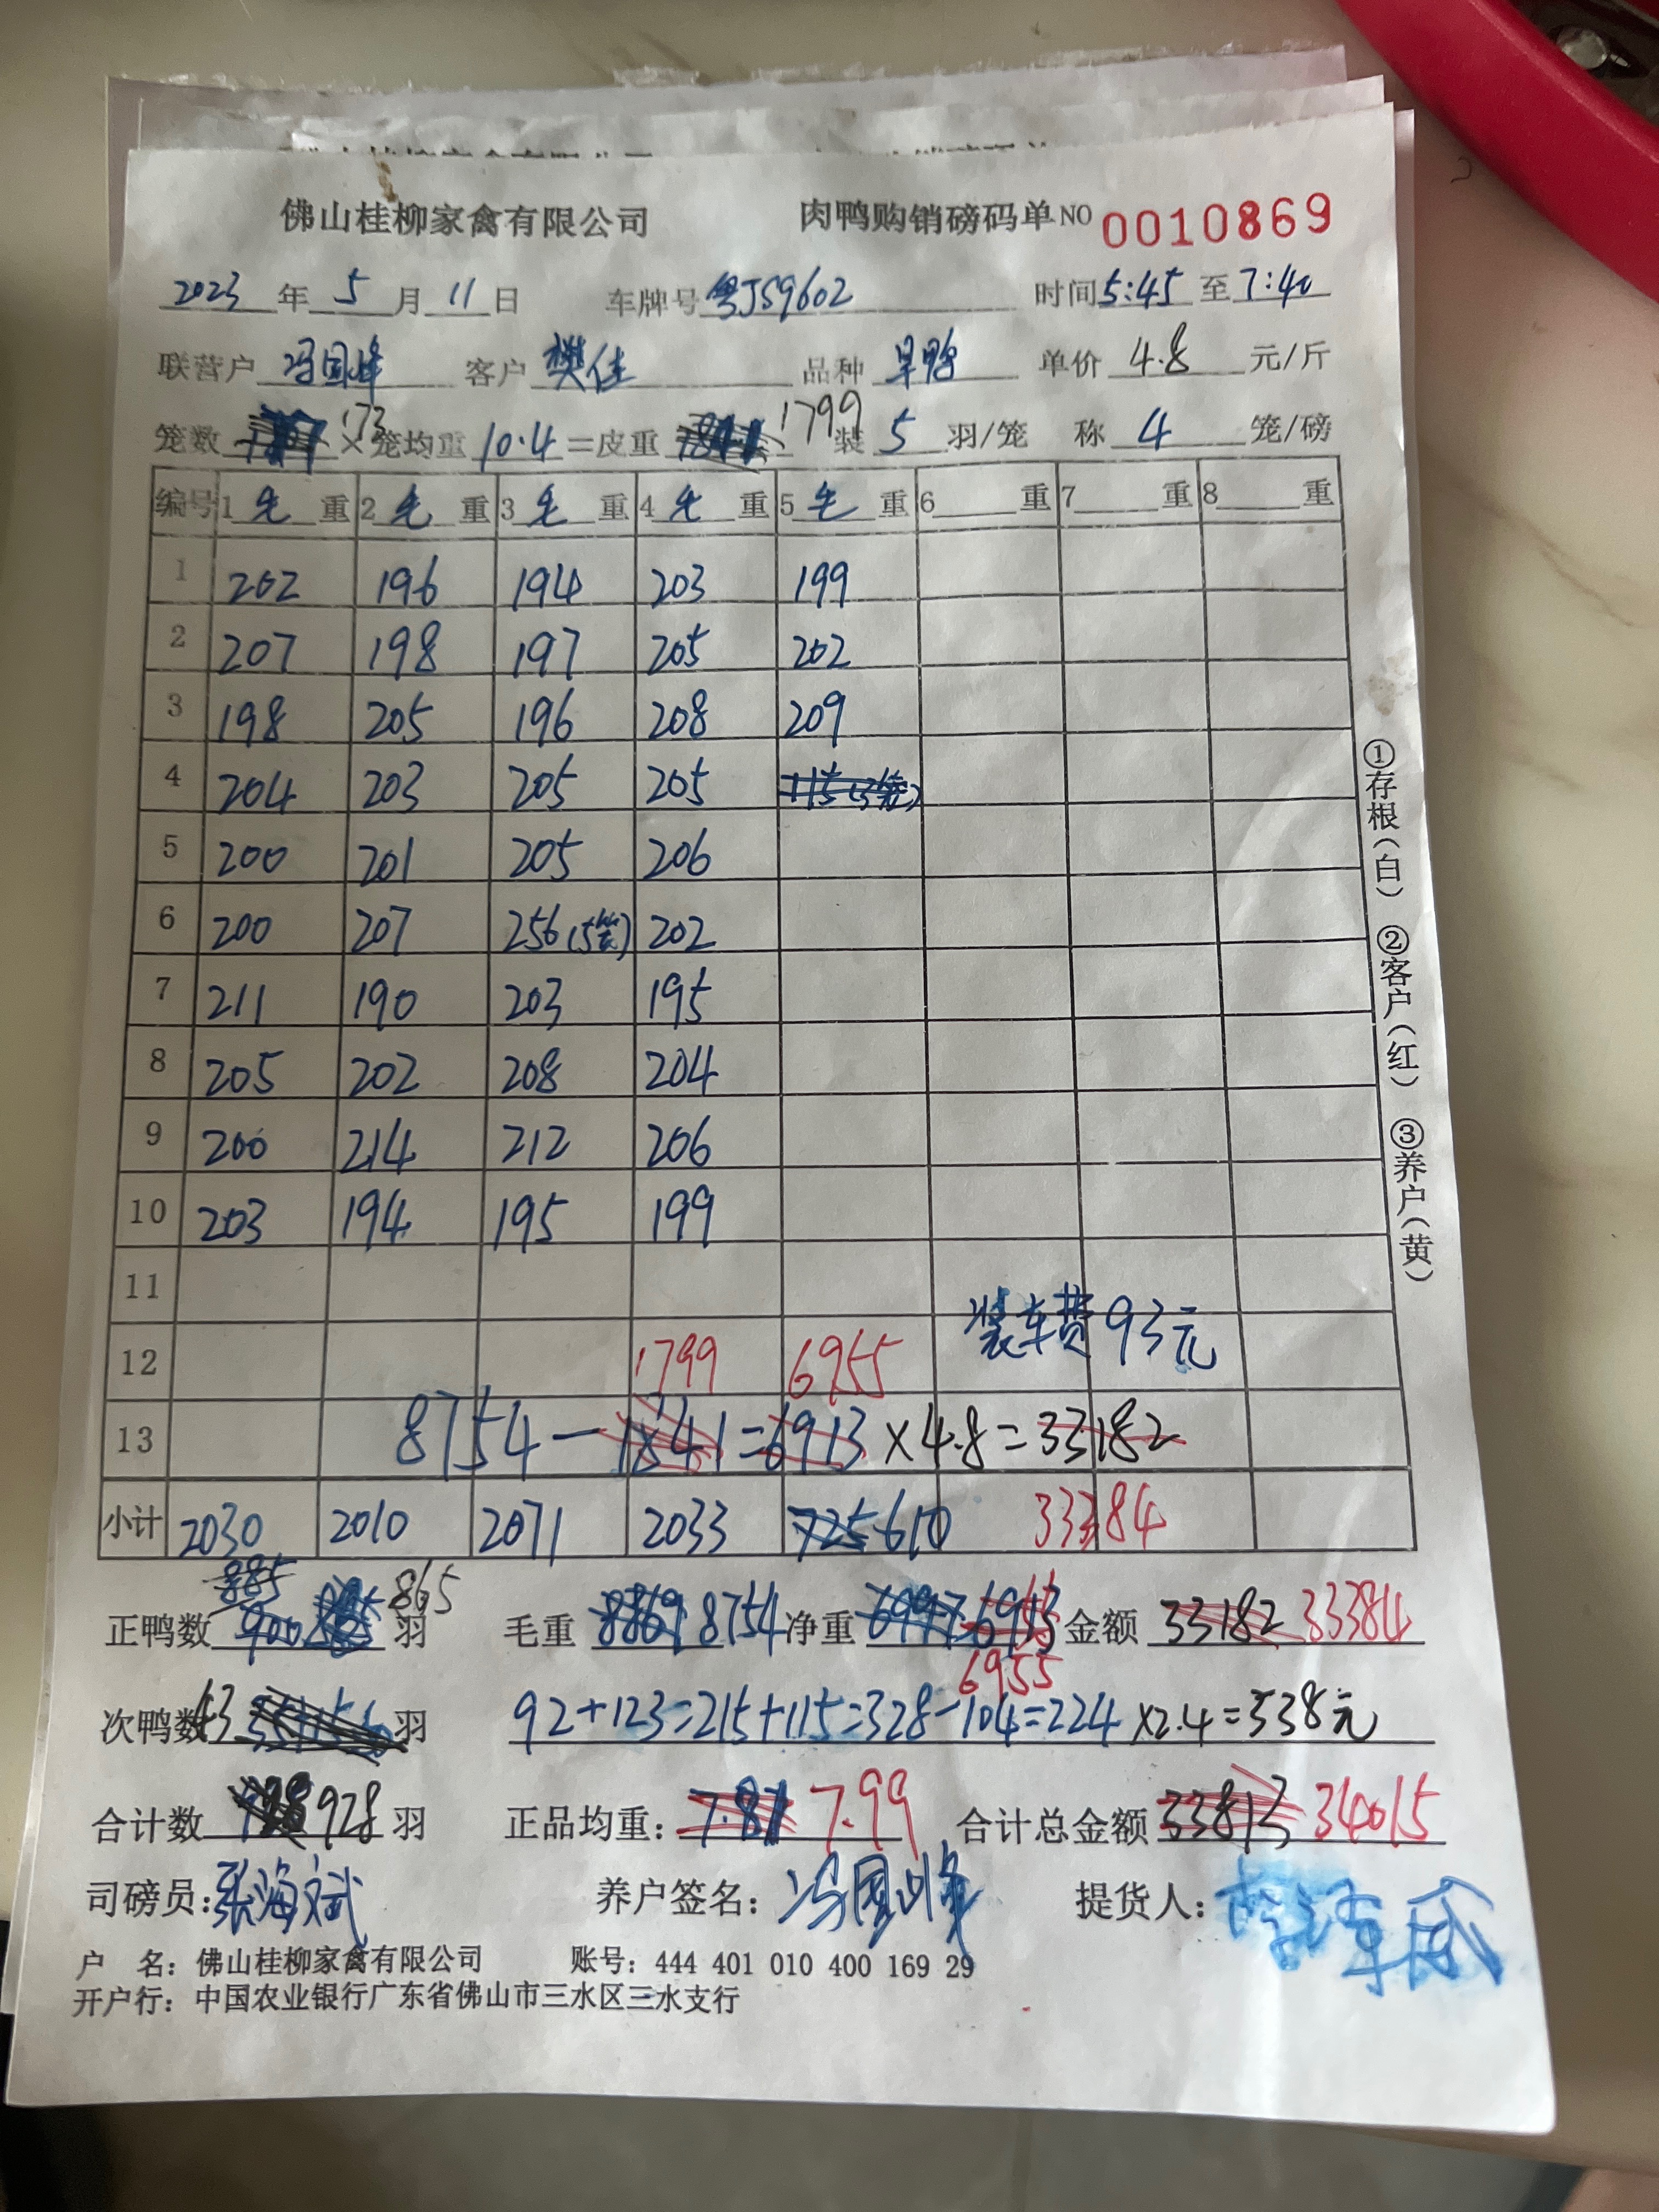 佛山桂柳家禽有限公司 肉鸭购销磅码单NO 0010869
2023年 5 月 11 日 车牌号 粤JS9602 时间 5:45 至 7:40
联营户 冯国峰 客户 樊佳 品种 旱鸭 单价 4.8 元/斤
笼数 173 ×笼均重 10.4 =皮重 1799 装 5 羽/笼 称 4 笼/磅
编号 1 毛 重 2 毛 重 3 毛 重 4 毛 重 5 毛 重 6 重 7 重 8 重
1 202 196 194 203 199
2 207 198 197 205 202
3 198 205 196 208 209
4 204 203 205 205 115(3笼)
5 200 201 205 206
6 200 207 256(5笼) 202
7 211 190 203 195
8 205 202 208 204
9 200 214 212 206
10 203 194 195 199
11
装车费93元
12 1799 6955
13 8754-1841=6913×4.8=33182
小计 2030 2010 2071 2033 725 610 33384
885
正鸭数 900 865 羽 毛重 8869 8754 净重 6913 金额 33182 33384
6955
次鸭数 63 羽 92+123=215+115=328-104=224×2.4=538元
合计数 928 羽 正品均重: 7.81 7.99 合计总金额 33813 34015
司磅员: 张海斌 养户签名: 冯国峰 提货人:
户 名: 佛山桂柳家禽有限公司 账号: 444 401 010 400 169 29
开户行: 中国农业银行广东省佛山市三水区三水支行
①存根(白) ②客户(红) ③养户(黄)